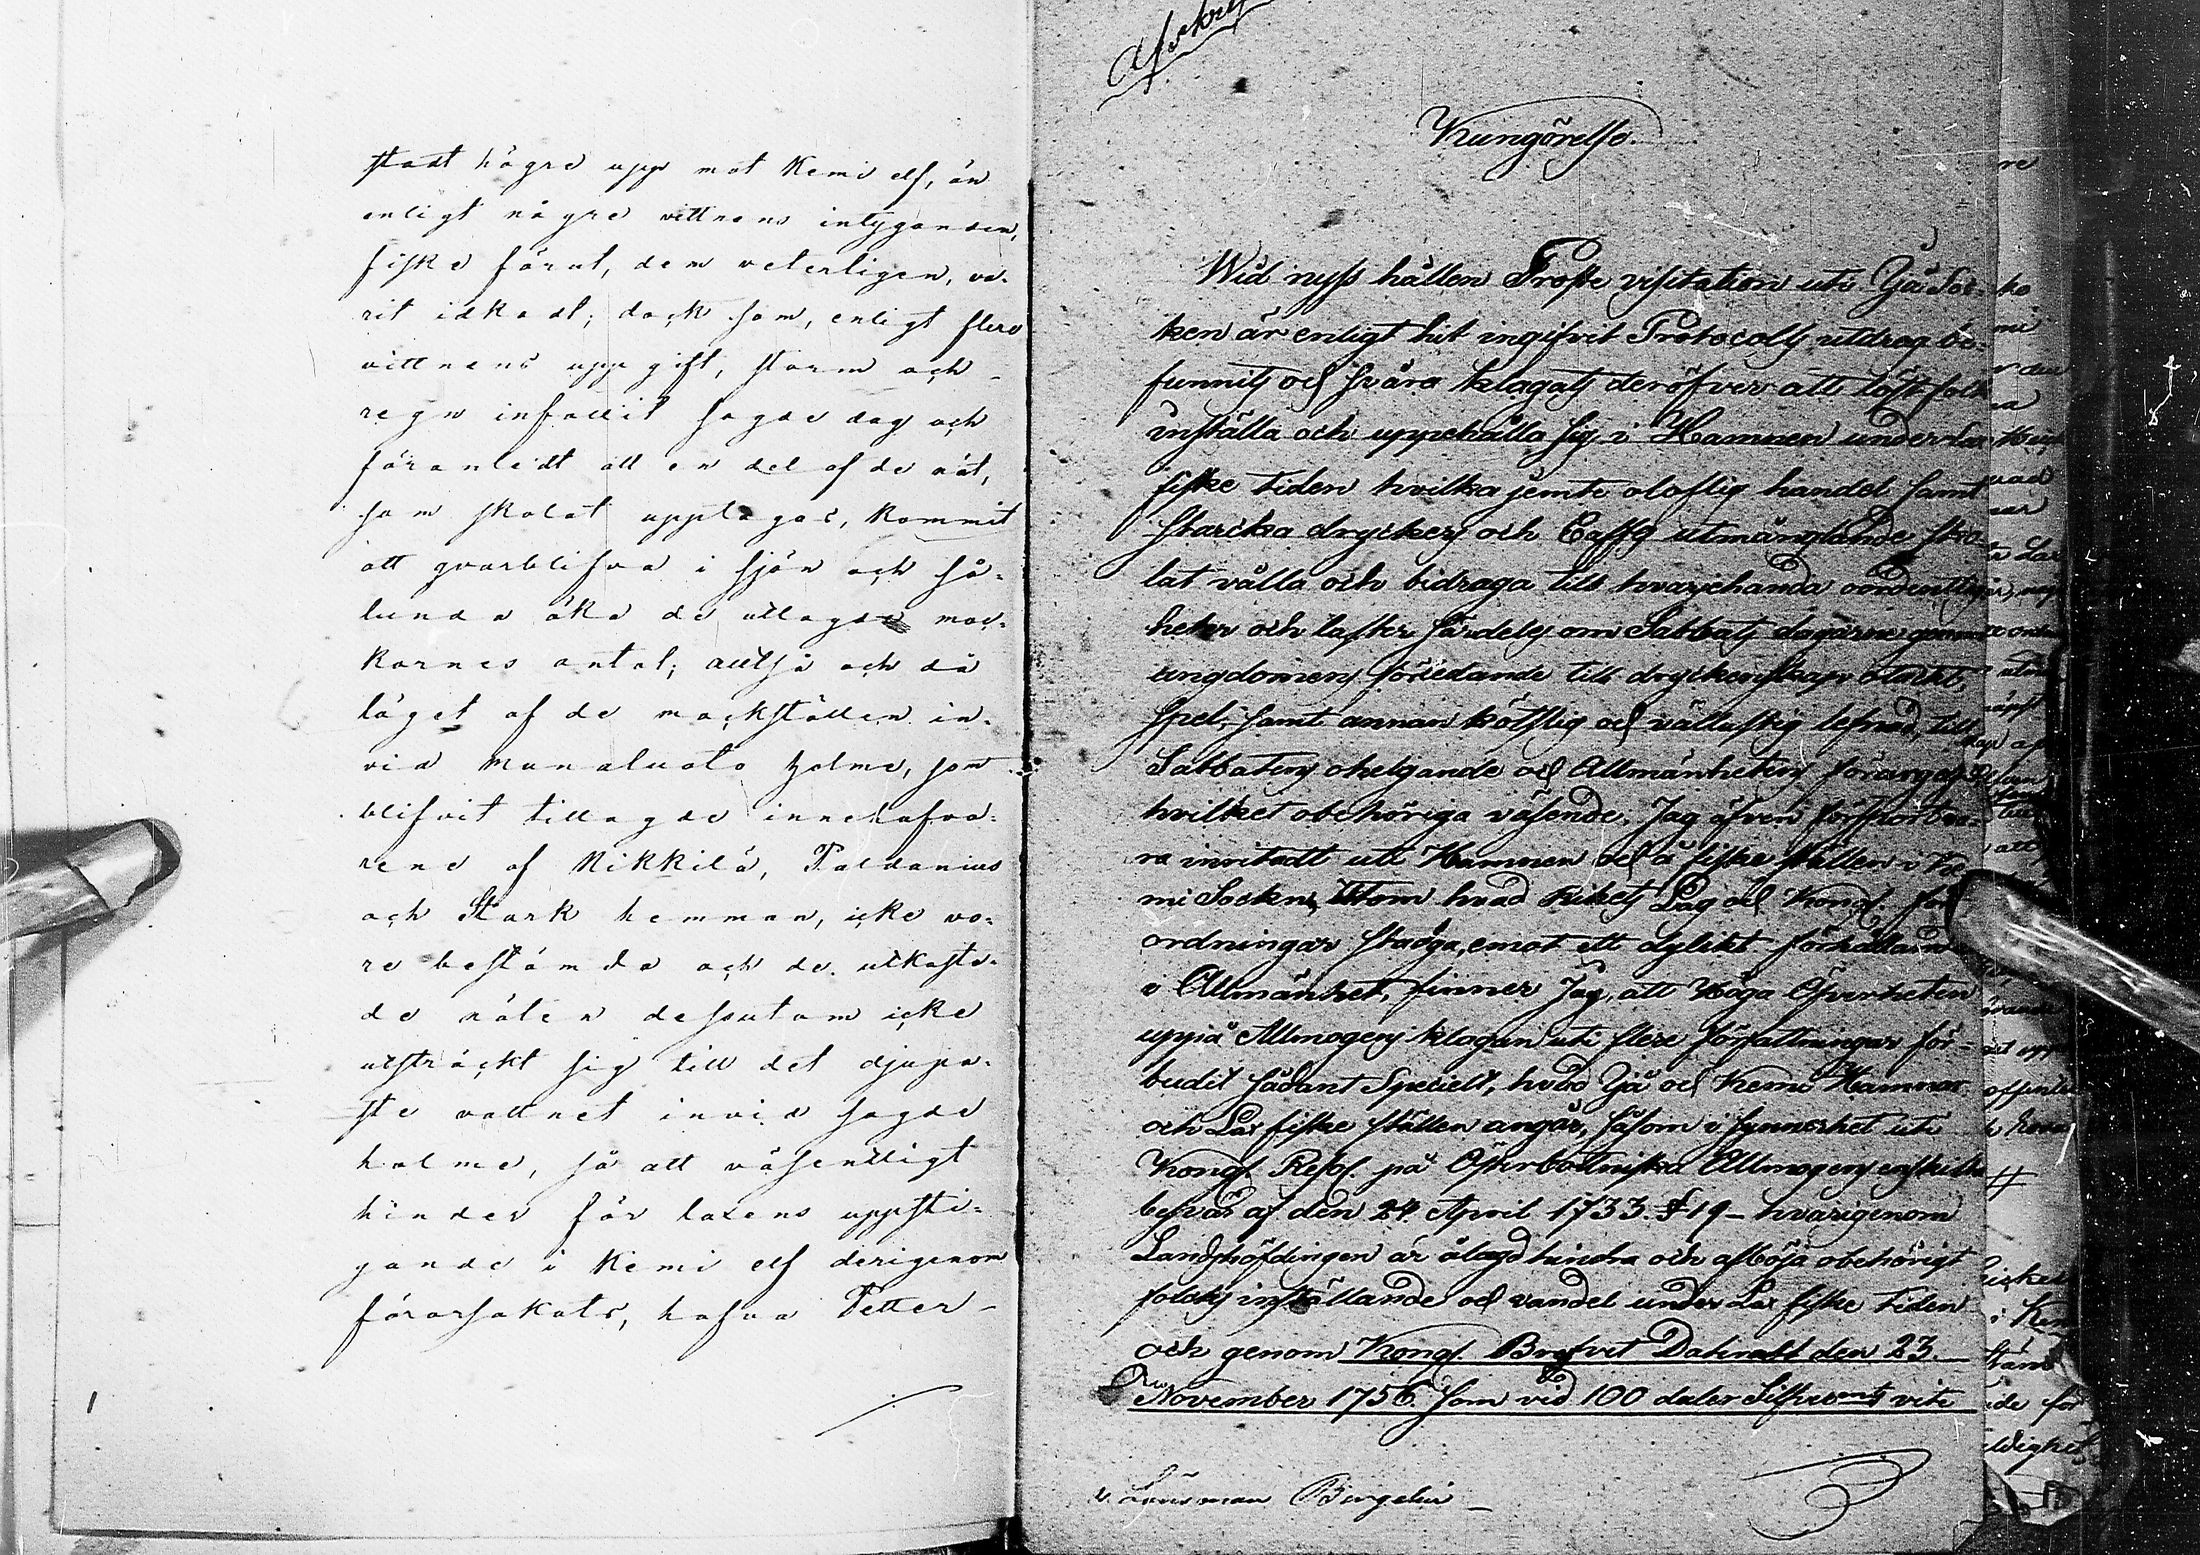 stadt högre upp mot Kemi elf, än
enligt någre vittnens intyganden,
fiske förut, dem veterligen, va-
rit idkadt; dock som, enligt flere
vittnens uppgift, storm och
regn infallit sagde dag och
föranledt att en del af de nät,
som skolat upptagas, kommit
att qvarblifva i sjön och så-
lunda öka de utlagde moc-
karnes antal; alltså och då
läget af de mockställen in-
vid Munaluoto holme, som
blifvit tillagde innehafva-
rene af Nikkilä, Paldanius
och Stark hemman, icke vo-
re bestämda och de utkasta-
de näten dessutom icke
utsträckt sig till det djupa-
ste vattnet invid sagde
holme, så att väsentligt
hinder för laxens uppsti-
gande i Kemi elf derigenom
förorsakats, hafva Petter
Afskrift
Kungörelse
Wid nyss hållen Proste visitation uti Ijå Soc-
ken är enligt hit ingifvit Protocolls utdrag be-
funnits och svåra klagats deröfver att löst folk
inställa och uppehålla sig i Hamnen under Lax
fiske tiden hvilka jemte oloflig handel samt
starcka dryckers och Caffe utmånglande sko-
lat vålla och bidraga till hvarjehanda oordentlig-
heter och laster särdeles om Sabbats dagarne genom
ungdomens förledande till dryckenskap otuckt,
spel, samt annan kötslig och vällustig lefnad, till
Sabbatens ohelgande och Allmänhetens förargelse
hvilket obehöriga väsende, Jag äfven försport va-
ra inritadt uti Hamnen och å fiske ställen i Ke-
mi Socken, Utom hvad Rikets Lag och Kongl. för-
ordningar stadga, emot ett dylikt förhållande
i Allmänhet, finner Jag, att Höga Öfverheten
uppå Allmogens klagan uti flere författningar för-
budit sådant Specielt, hvad Ijå och Kemi Hamnar
och Lax fiske ställen angår, såsom i synnerhet uti
Kongl. Resol. på Österbottniska Allmogens enskilta
besvär af den 24. April 1733. § 19 - hvarigenom
Landshöfdingen är ålagd hindra och afböja obehörigt
folcks inställande och vandel under Lax fiske tiden
och genom Kongl. Brefvit Dateradt den 23.
November 1756. som vid 100 daler Silfwermts vite
Länsman Bergelin